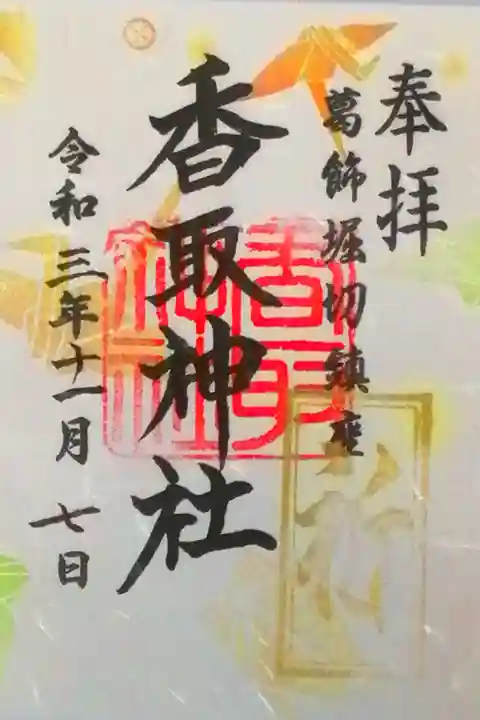 奉拝
葛飾堀切鎮座
香取神社
香取
神社
令和三年十一月七日